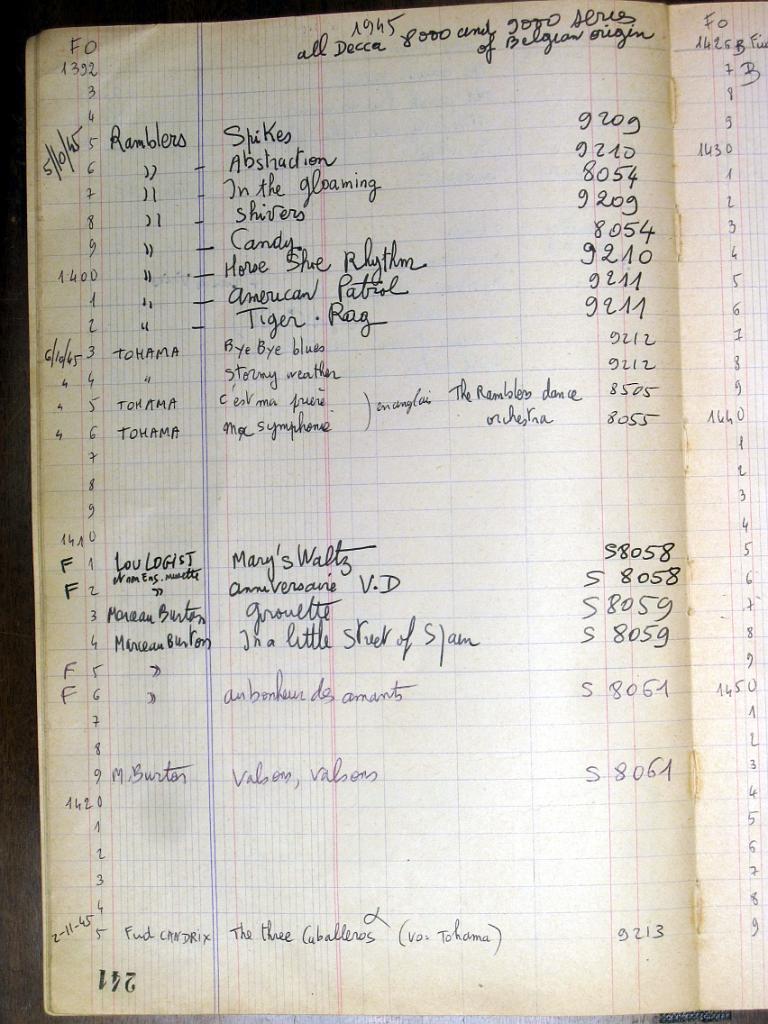 1945
all Decca 8000 and 9000 series
of Belgian origin
FO
1392
3
4
5/10/45 5 Ramblers Spikes 9209
6 " - Abstraction 9210
7 " - In the gloaming 8054
8 " - Shivers 9209
9 " - Candy 8054
1400 " - Horse Shoe Rhythm 9210
1 " - American Patrol 9211
2 " - Tiger. Rag 9211
6/10/45 3 TOHAMA Bye Bye blues 9212
" 4 " Stormy weather 9212
" 5 TOHAMA c'est ma prière ) en anglais The Ramblers dance 8505
" 6 TOHAMA ma symphonie orchestra 8055
7
8
9
1410
F 1 LOU LOGIST Mary's Waltz S8058
et son Ens. musette
F 2 " anniversaire V.D S 8058
3 Marceau Burton girouette S 8059
4 Marceau Burton In a little Street of Spain S 8059
F 5 "
F 6 " au bonheur des amants S 8061
7
8
9 M. Burton Valsons, valsons S 8061
1420
1
2
3
4
2-11-45 5 Fud CANDRIX The three Caballeros (vo. Tohama) 9213
241
FO
1425 B
7 B
8
9
1430
1
2
3
4
5
6
7
8
9
1440
1
2
3
4
5
6
7
8
9
1450
1
2
3
4
5
6
7
8
9